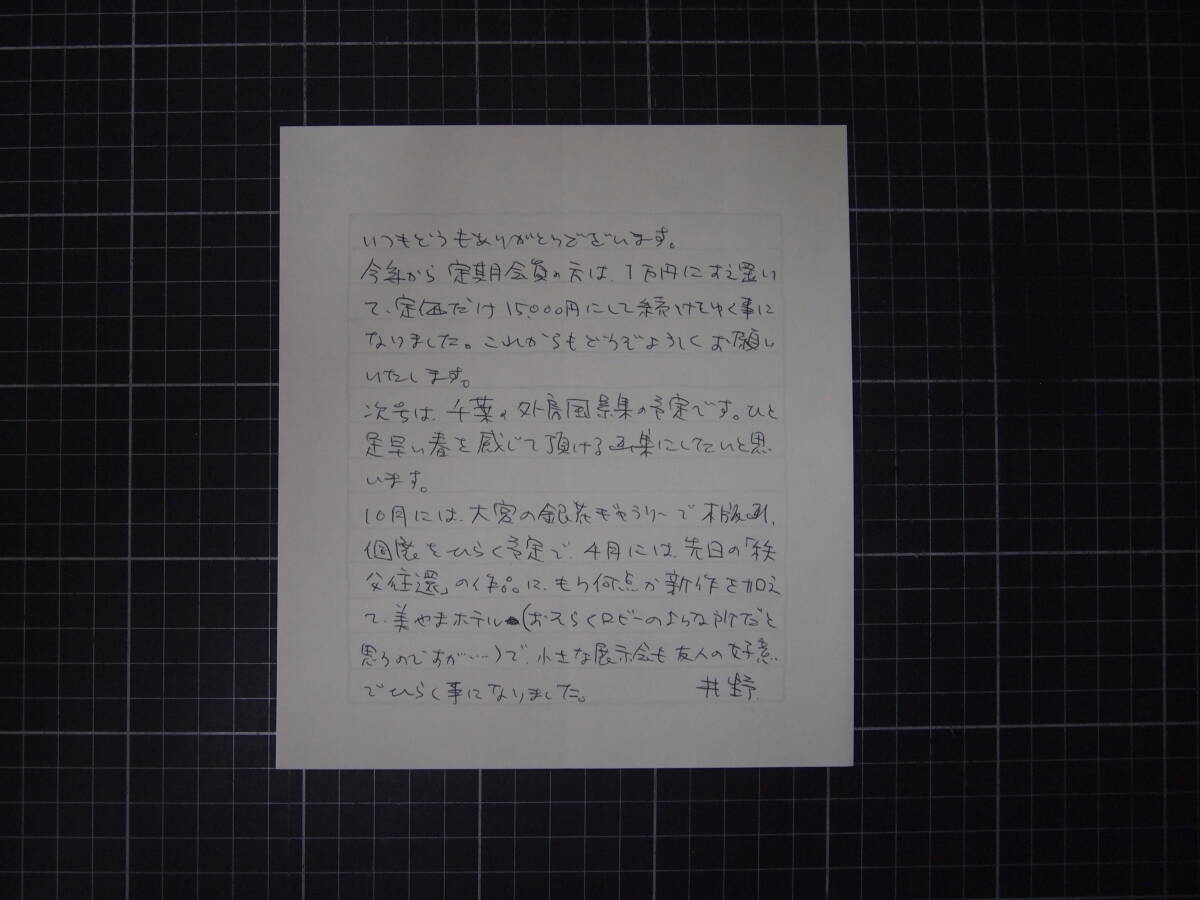 いつもどうもありがとうございます。
今年から、定期会員の方は、1万円にすえ置い
て、定価だけ15,000円にして続けてゆく事に
なりました。これからもどうぞよろしくお願い
いたします。
次号は、千葉の外房風景集の予定です。ひと
足早い春を感じて頂ける画集にしたいと思
います。
10月には、大宮の銀花ギャラリーで木版画、
個展をひらく予定で、4月には、先日の「秩
父往還」の作品に、もう何点か新作を加え
て、美やまホテル(おそらくロビーのような所だと
思うのですが…)で、小さな展示会も友人の好意
でひらく事になりました。 井野